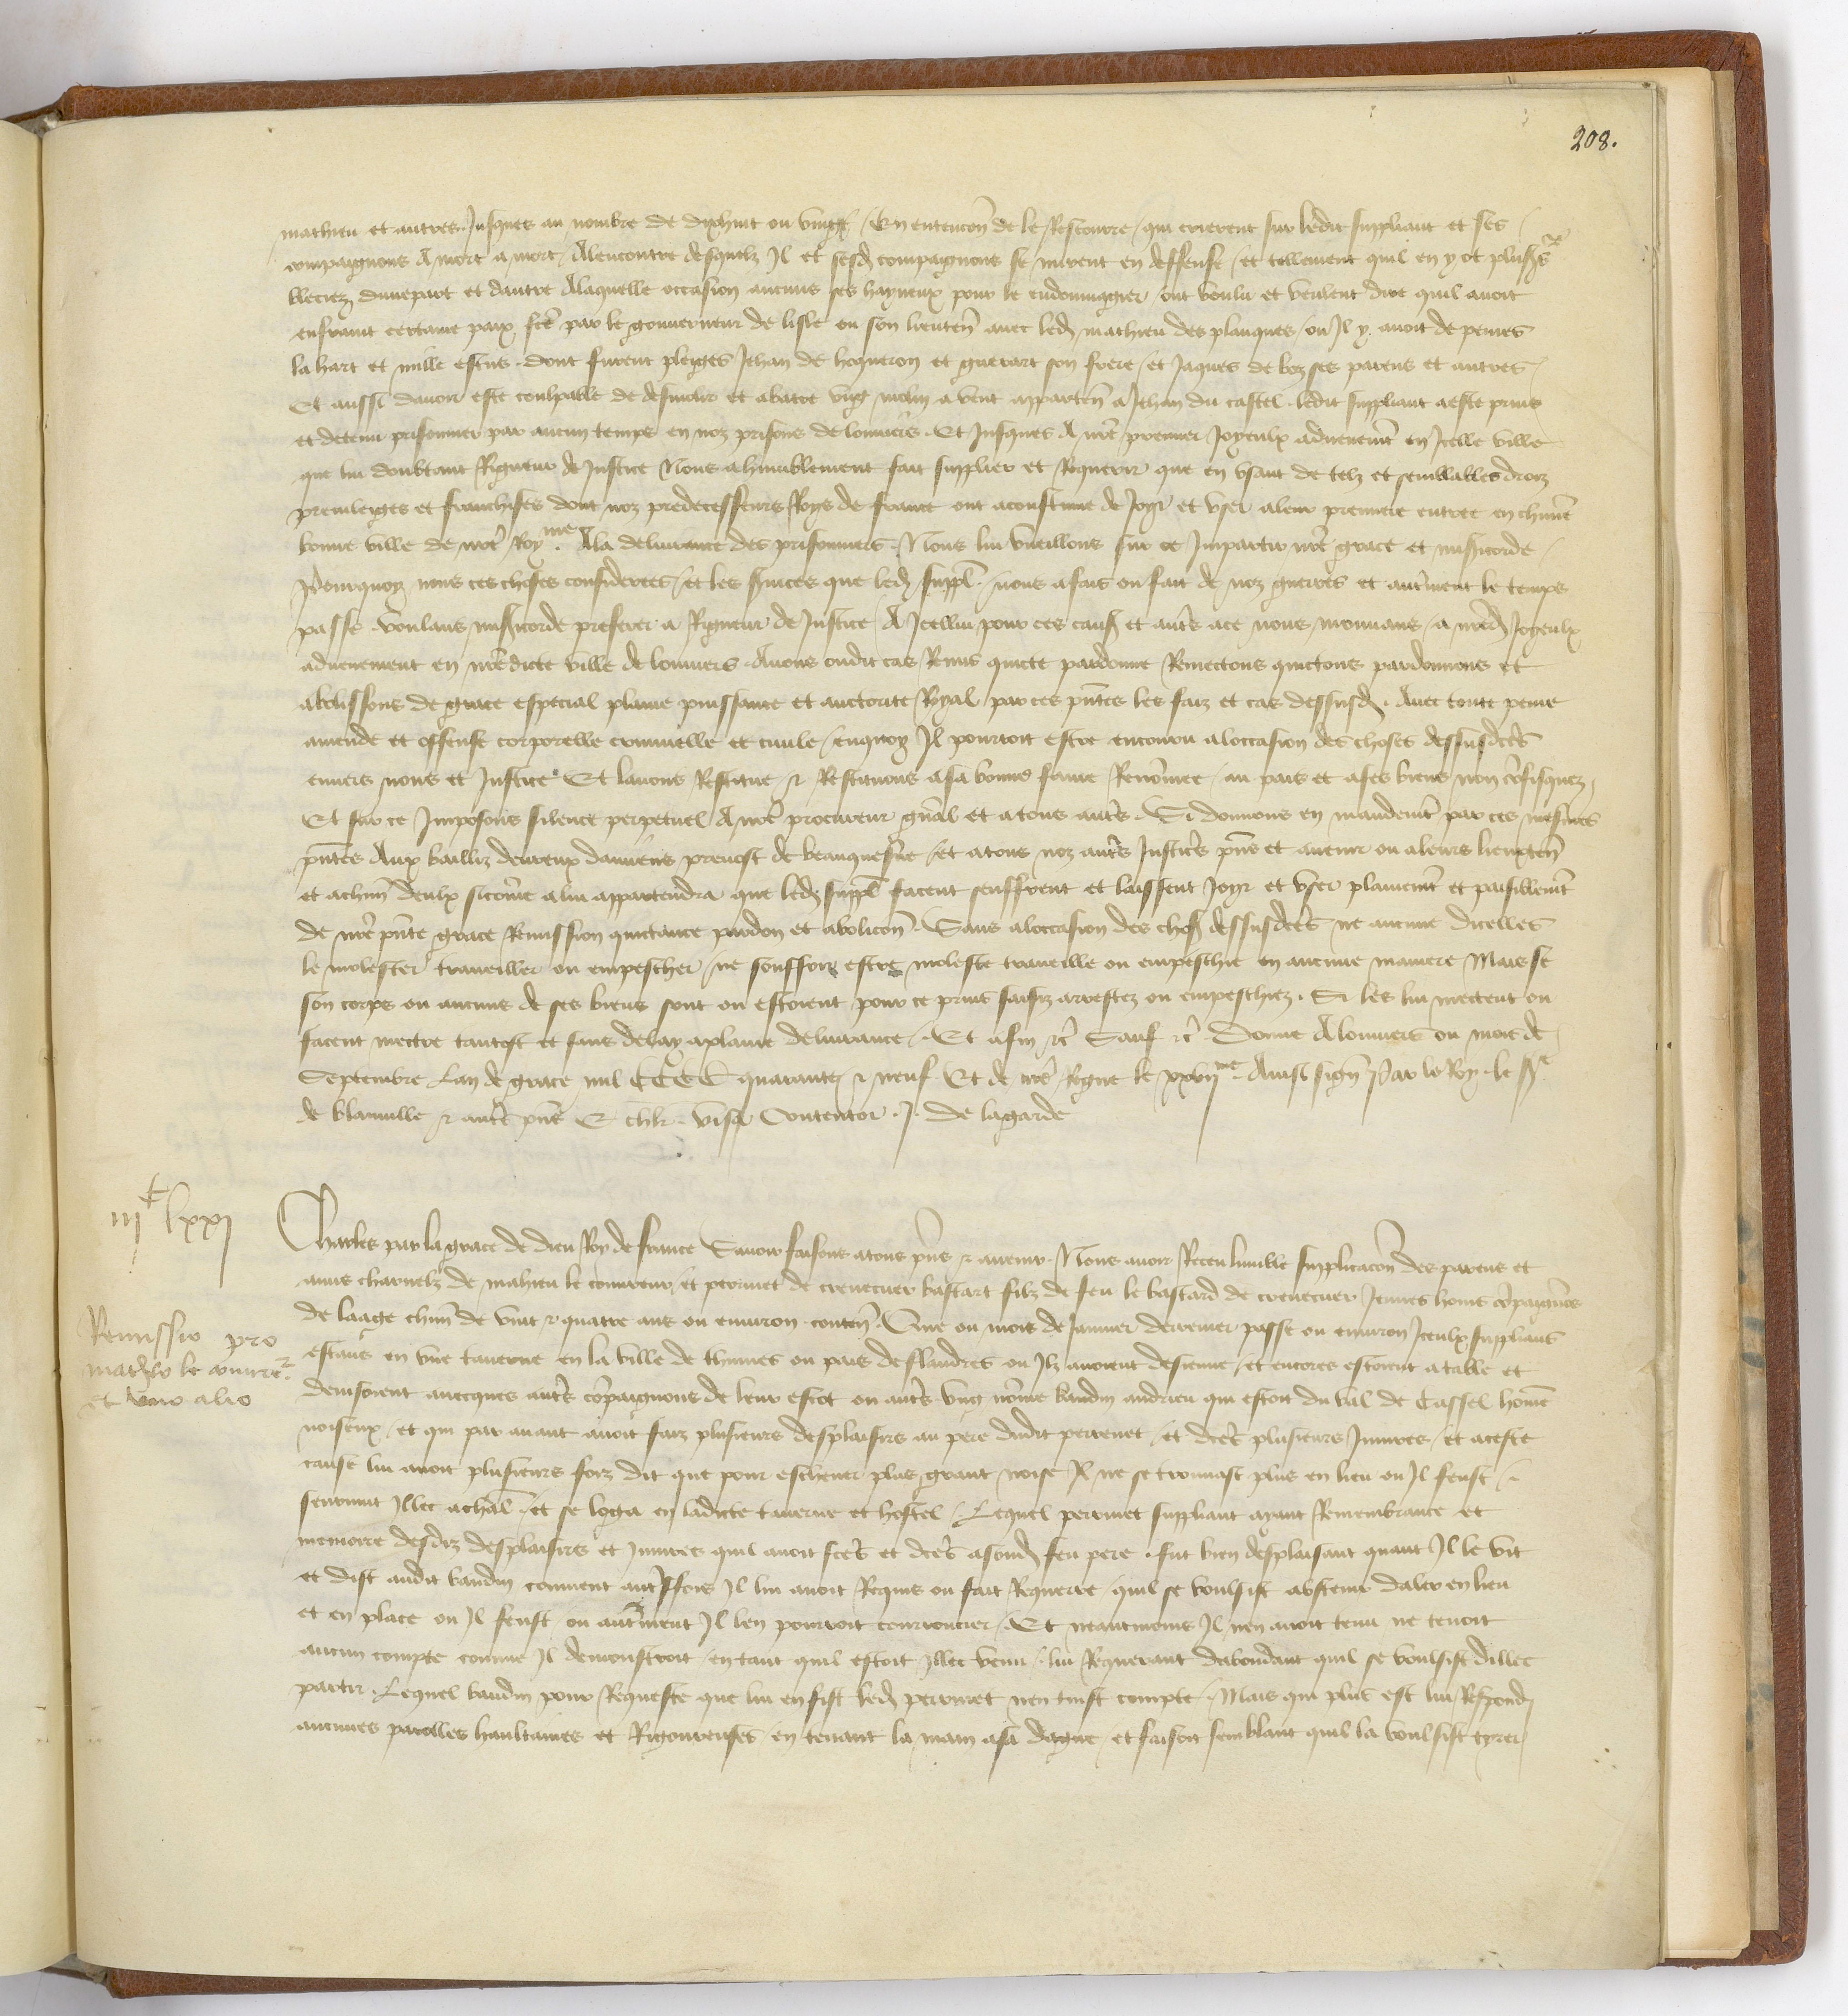 208.
mathieu et autres Jusques au nombre de dixhuit ou vingt / En entencoñ de le Rescourre / qui crierent sur ledit suppliant et ses
compaignons A mort a mort / Alencontre desquelz Il et sesd compaignons se mirent en deffense / et tellement quil en y ot plusrs
bleciez dunepart et dautre Alaquelle occasion aucuns ses hayneux pour le endommagier / ont voulu et veulent dire quil auoit
enfraint certaine paix fcte par le gouuerneur de lisle ou son lieuten̄ auec led mathieu des planques / ou Il y auoit de peines
la hart et mille escus . dont furent pleiges Jehan de hoqueron et guerart son frere / et Jaques de boz ses parens et autres /
Et aussi dauoir este coulpable de desmolir et abatre vng molin a vent apparten̄ a Jehan du castel . ledit suppliant aeste prins
et detenu prisonnier par aucun temps en noz prisons de louuiers . Et Jusques A nr̄e premier Joyeulx aduenemt̄ en Icelle ville
que lui doubtant Rigueur de Justice Nous ahumblement fait supplier et Requerir que en vsant de telz et semblables droiz
preuileiges et franchises dont noz predecesseurs Roys de france ont acoustume de Joyr et vser aleur premiere entree en chūne
bonne ville de nr̄e Roy.me Ala deliurance des prisonniers . Nous lui vueillons sur ce Impartir nr̄e grace et misicorde /
Pourquoy nous ces choses considerees / et les s̄uices que led suppl̄ . nous afais ou fait de noz guerres et autr̄ment le temps
passe . voulans misicorde preferer a Rigueur de Justice / A Icellui pour ces causes et autr̄s ace nous mouuans / a nr̄ed Joyeulx
aduenement en nr̄edicte ville de louuiers . Auons oudit cas Remis quicte pardonne Remectons quictons pardonnons et
abolissons de grace especial plaine puissance et auctorite Royal par ces pn̄tes les faiz et cas dessusd . Auec toute peine
amende et offense corporelle criminelle et ciuile / enquoy Il pourroit estre encouru aloccasion des choses dessusdctes
enuers nous et Justice Et lauons Restitue & Restituons asa bonne fame Renōmee / au pais et ases biens non cōfisquez
Et sur ce Imposons silence perpetuel A nr̄e procureur gn̄al et atous autr̄s . Si donnons en mandemt̄ par ces mesmes
pn̄tes Aux bailliz deureux damiens preuost de beauquesne / et atous noz autr̄s Justicrs pn̄s et auenir ou aleurs lieuxten̄
et achūn deulx sicōme alui appartendra que led suppl̄ facent seuffrent et laissent Joyr et vser plainemt̄ et paisiblemt̄
de nr̄e pn̄te grace Remission quictance pardon et abolicoñ . Sans aloccasion des choses dessusdctes ne aucune dicelles
le molester traueiller ou empescher / ne souffrir estre moleste traueille ou empeschie en aucune maniere Mais se
son corps ou aucuns de ses biens sont ou estoient pour ce prins saisiz arrestez ou empeschiez . Si les lui mectent ou
facent mectre tantost et sans delay aplaine deliurance / . Et afin &c̄ Sauf &c̄ . Donne A louuiers ou mois de
Septembre Lan de grace mil CCCC quarante & neuf . Et de nr̄e Regne le xxvijme . Ainsi sign̄ Par le Roy . le sr
de blainuille & autr̄s pn̄s E chlr . visa Contentor . J. de lagarde
iijC lxxj
Remissio pro
matheo le couureur
et vno alio
Charles par la grace de dieu Roy de france Sauoir faisons atous pn̄s & auenir . Nous auoir Receu lumble supplicacoñ des parens et
amis charnelz de mahieu le couureur / et perrinet de creuecuer bastart filz de feu le bastard de creuecuer Jeunes homs cōpaignōs
de laage chūn de vint & quatre ans ou enuiron . conten̄ Que ou mois de Januier derrenier passe ou enuiron Iceulx supplians
estans en vne tauerne en la ville de thunes ou pais de flandres ou Ilz auoient desieune / et encores estoient atable et
deuisoient auecques autr̄s cōpaignons de leur escot ou autr̄s vng nōme baudin andrieu qui estoit du val de Cassel hōme
noiseux / et qui par auant auoit faiz plusieurs desplaisirs au pere dudit perrinet / et dctes plusieurs Iniures / et aceste
cause lui auoit plusieurs foiz dit que pour escheuer plus grant noise Il ne se trouuast plus en lieu ou Il feust / .
seruint Illec acheual / et se loga en ladicte tauerne et hostel / Lequel perrinet suppliant ayant Remembrance et
memoire desdiz desplaisirs et Iniures quil auoit fctes et dctes asond feu pere . fut bien desplaisant quant Il le vit
et dist audit baudin comment autrsfois Il lui auoit Requis ou fait Requerre quil se voulsist abstenir daler en lieu
et en place ou Il feust ou autr̄ment Il len pourroit courroucier . Et neantmoins Il nen auoit tenu ne tenoit
aucun compte comme Il demonstroit / entant quil estoit Illec venu / lui Requerant dabondant quil se voulsist dillec
partir . Lequel baudin pour Requeste que lui en fist led perrinet nen tinst compte . Mais qui plus est lui Respond
aucunes parolles haultaines et Rigoureuses en tenant la main asa dague / et faisoit semblant quil la voulsist tyrer